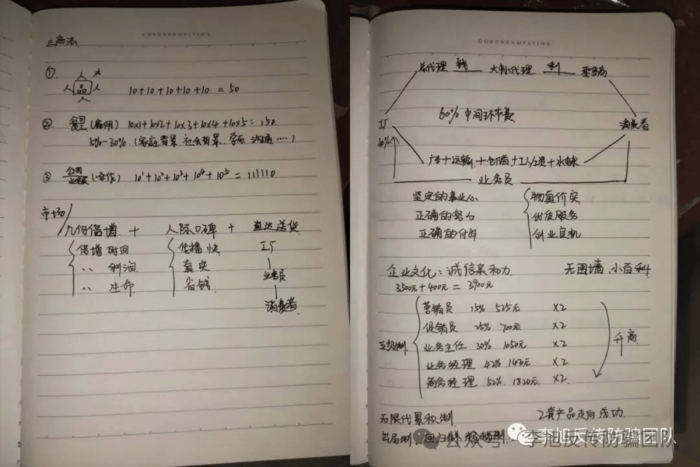 三商法
① 品 人 人 人 人 10+10+10+10+10=50
② (雇用) 10x1+10x2+10x3+10x4+10x5=150
5%-30% (家庭背景、社会背景、学历、沟通……)
③ (合作) 10¹+10²+10³+10⁴+10⁵=111110
市场
几何倍增 + 人际口碑 + 直达送货
倍增时间 传播快 工厂
〃 利润 真实 业务员
〃 生命 省钱 消费者
总代理 钱 大小代理 零售商
60% 中间环节费
工厂 消费者
40%
广告+运输+仓储+工人工资+水电
业务员
坚定的事业心 物有价实
正确的努力 优质服务
正确的付出 创业良机
企业文化: 诚信聚和力 无围墙 小百科
3500元+400元=3900元
五级制
营销员 15% 525元 x2
促销员 20% 700元 x2
业务主任 30% 1050元 x2
业务经理 42% 1470元 x2
商务经理 52% 1820元 x2
升高
无限代累积制 2套产品走向成功
公众号·李旭反传防骗团队
@李旭反传防骗团队